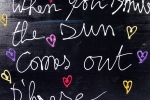 When you smile
the sun
comes out
Please